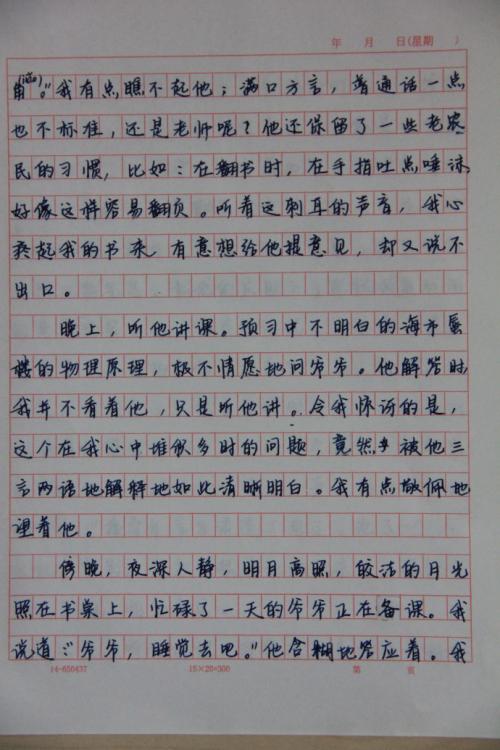 年 月 日(星期 )
甪(lù)。”我有点瞧不起他；满口方言，普通话一点
也不标准，还是老师呢？他还保留了一些老农
民的习惯，比如：在翻书时，在手指吐点唾沫
好像这样容易翻页。听着这刺耳的声音，我心
疼起我的书来，有意想给他提意见，却又说不
出口。
晚上，听他讲课。预习中不明白的海市蜃
楼的物理原理，极不情愿地问爷爷。他解答时
我并不看着他，只是听他讲。令我惊讶的是，
这个在我心中堆积多时的问题，竟然被他三
言两语地解释地如此清晰明白。我有点敬佩地
望着他。
傍晚，夜深人静，明月高照，皎洁的月光
照在书桌上，忙碌了一天的爷爷正在备课。我
说道：“爷爷，睡觉去吧。”他含糊地答应着。我
14-650437 15×20=300 第 页